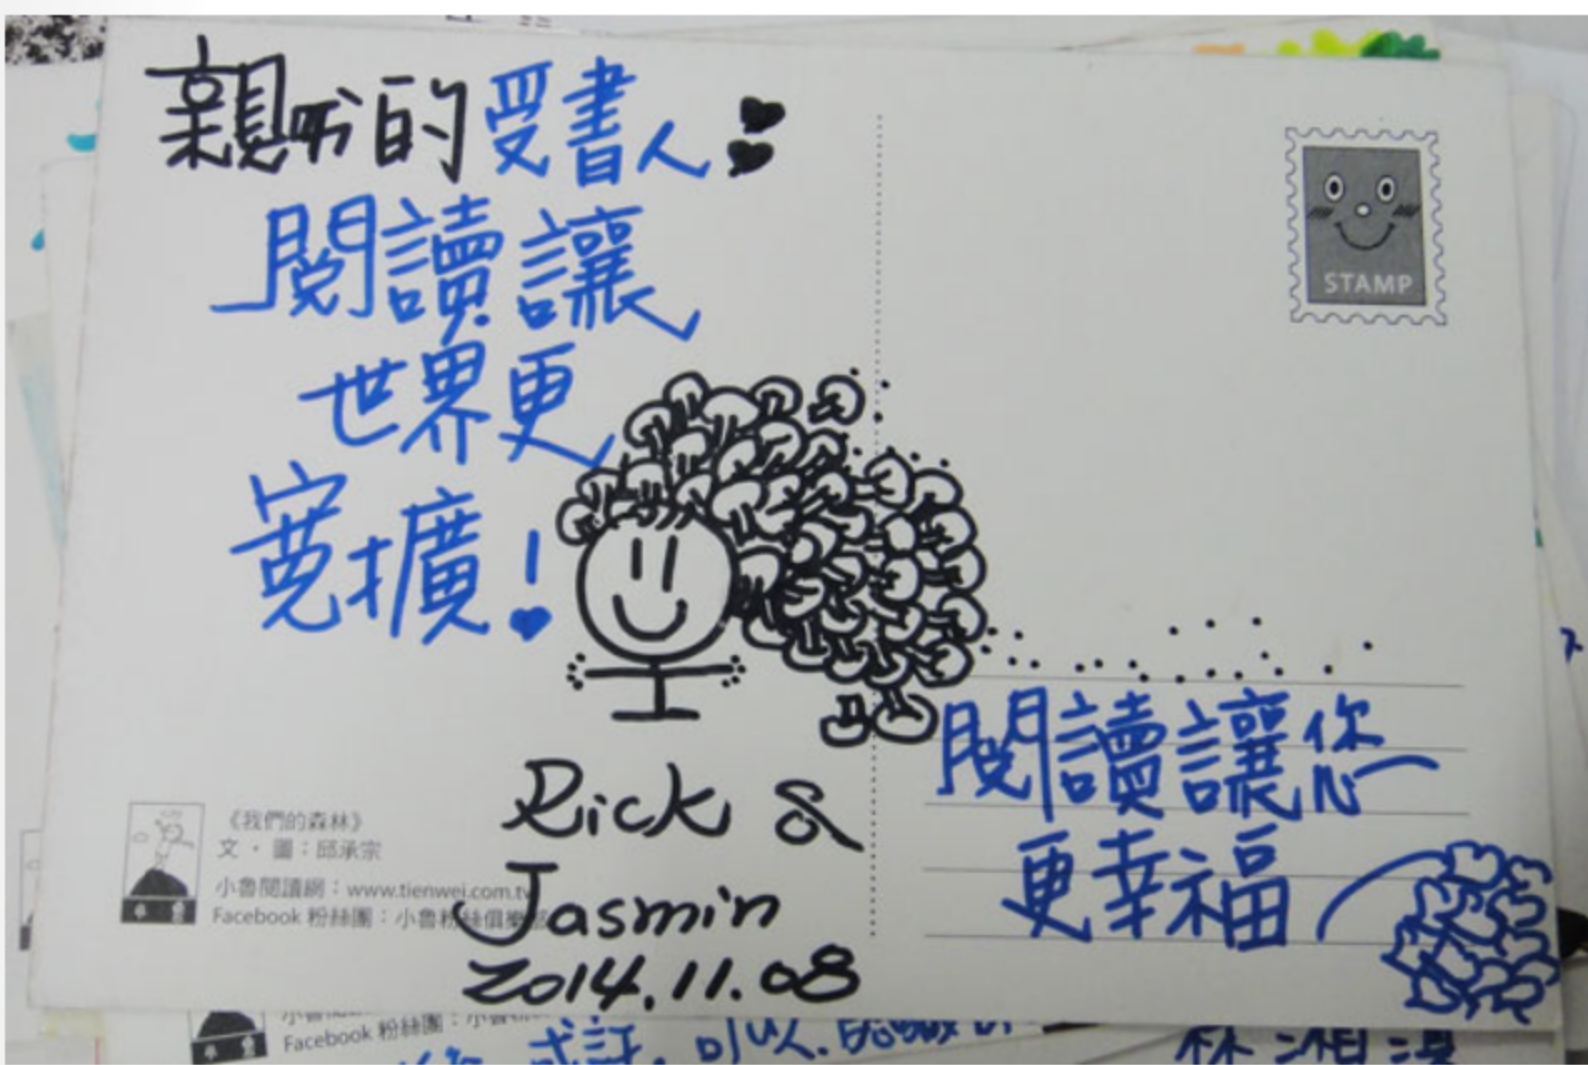 親愛的受書人
閱讀讓
世界更
寬擴!
STAMP
Rick &
Jasmin
2014.11.08
閱讀讓您
更幸福
《我們的森林》
文・圖：邱承宗
小魯閱讀網：www.tienwei.com.tw
Facebook 粉絲團：小魯粉絲俱樂部
Facebook 粉絲團：小魯